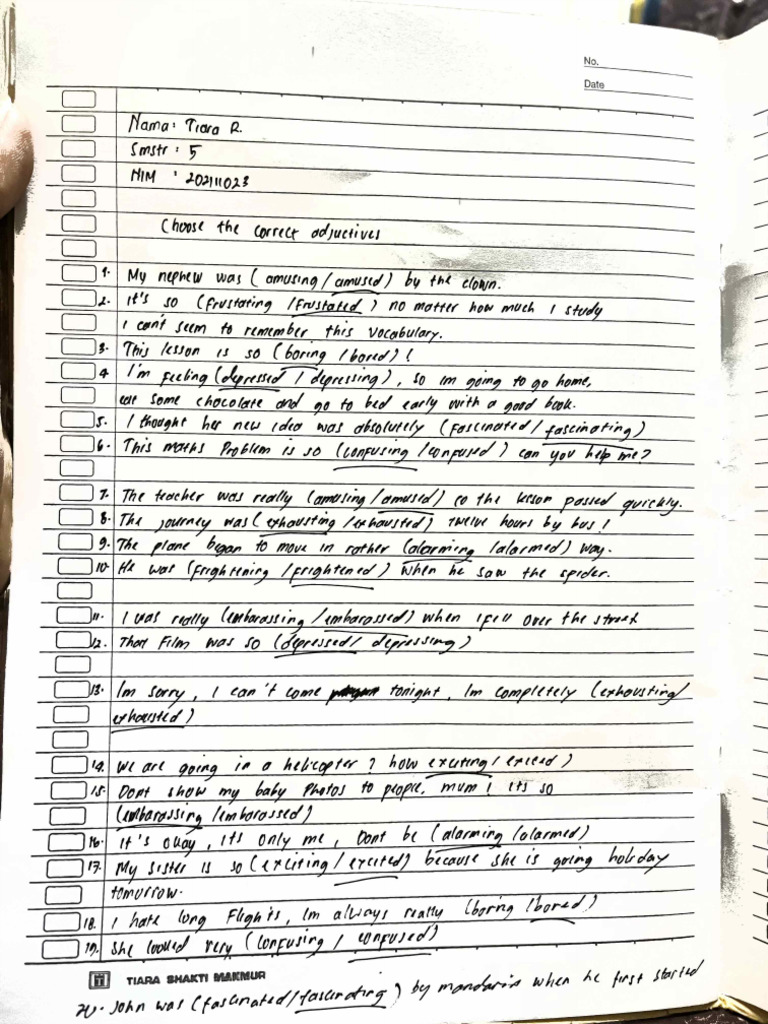 No.
Date
Nama: Tiara R.
Smstr : 5
NIM : 202111023
Choose the correct adjuctives
1. My nephew was (amusing / amused) by the clown.
2. It's so (frustating / frustated) no matter how much I study
I can't seem to remember this vocabulary.
3. This lesson is so (boring / bored) !
4. I'm feeling (depressed / depressing), so im going to go home,
eat some chocolate and go to bed early with a good book.
5. I thought her new idea was absolutely (fascinated / fascinating)
6. This maths Problem is so (confusing / confused) can you help me?
7. The teacher was really (amusing / amused) so the lesson passed quickly.
8. The journey was (exhausting / exhausted) Twelve hours by bus !
9. The plane began to move in rather (alarming / alarmed) way.
10. He was (frightening / frightened) when he saw the spider.
11. I was really (embarassing / embarassed) when I fell over the street
12. That Film was so (depressed / depressing)
13. Im sorry, I can't come tonight, Im completely (exhausting /
exhausted)
14. We are going in a helicopter ? how exciting / exceed)
15. Dont show my baby Photos to people, mum! Its so
(embarassing / embarassed)
16. It's okay, its only me, Dont be (alarming / alarmed)
17. My sister is so (exciting / excited) because she is going holiday
tomorrow.
18. I hate long Flights, Im always really (boring / bored)
19. She looked very (confusing / confused)
TIARA SHAKTI MAKMUR
20. John was (fascinated / fascinating) by mandarin when he first started